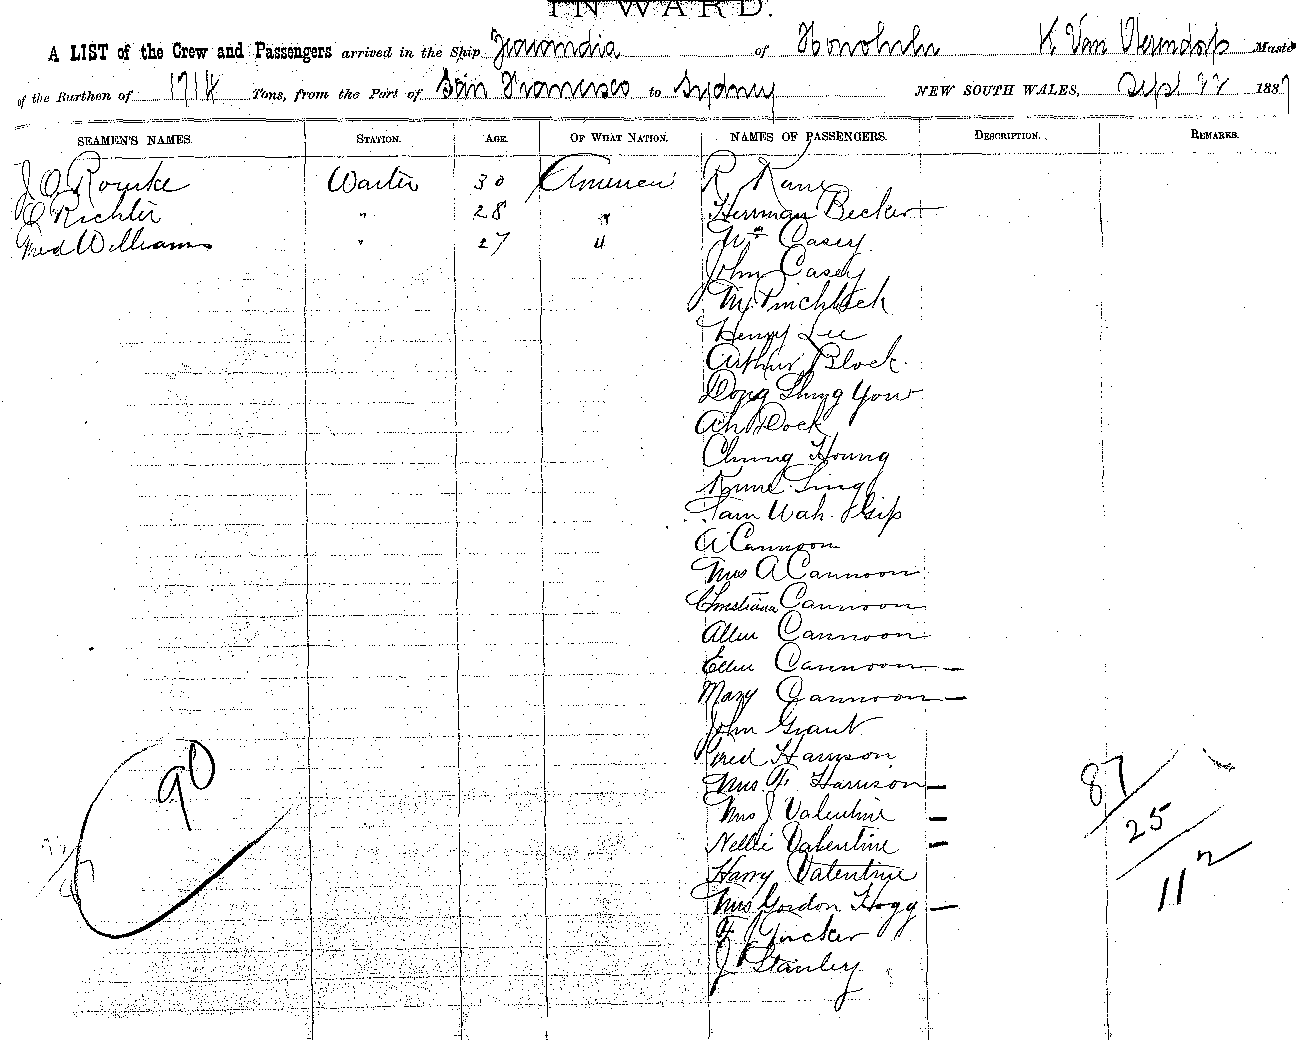 INWARD.
A LIST of the Crew and Passengers arrived in the Ship Zealandia of Honolulu K Van Oterendorp Maste
of the Burthen of 1718 Tons, from the Port of San Francisco to Sydney NEW SOUTH WALES, Sept 22 1887
SEAMEN'S NAMES. STATION. AGE. OF WHAT NATION. NAMES OF PASSENGERS. DESCRIPTION. REMARKS.
J O Rourke Waiter 30 America R Kane
C Richter " 28 " Herman Becker
Fred Williams " 27 " Wm Casey
John Casey
M. Pinchbeck
Henry Lee
Arthur Block
Dong Shing You
Ah Dock
Chung Houng
Kune Sing
Tam Wah
A Cannoon
Mrs A Cannoon
Christiana Cannoon
Allen Cannoon
Ellen Cannoon
Mary Cannoon
John Grant
Fred Harrison
Mrs F Harrison
Mrs J Valentine
Nellie Valentine
Harry Valentine
Mrs Gordon Hogg
F J Tucker
J Stanley
90
87
25
112